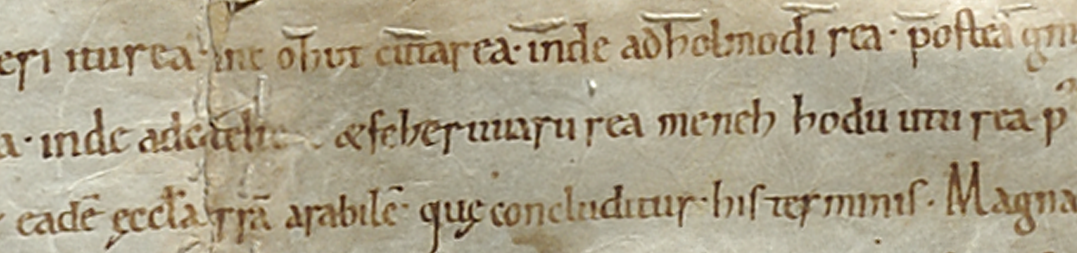 eri iturea· hinc ohut cutarea· inde adholmodi rea· postea gni
a· inde adcastelic & feheruuaru rea meneh hodu utu rea p
eadē ęccła trā arabilē· quę concluditur· his terminis· Magna